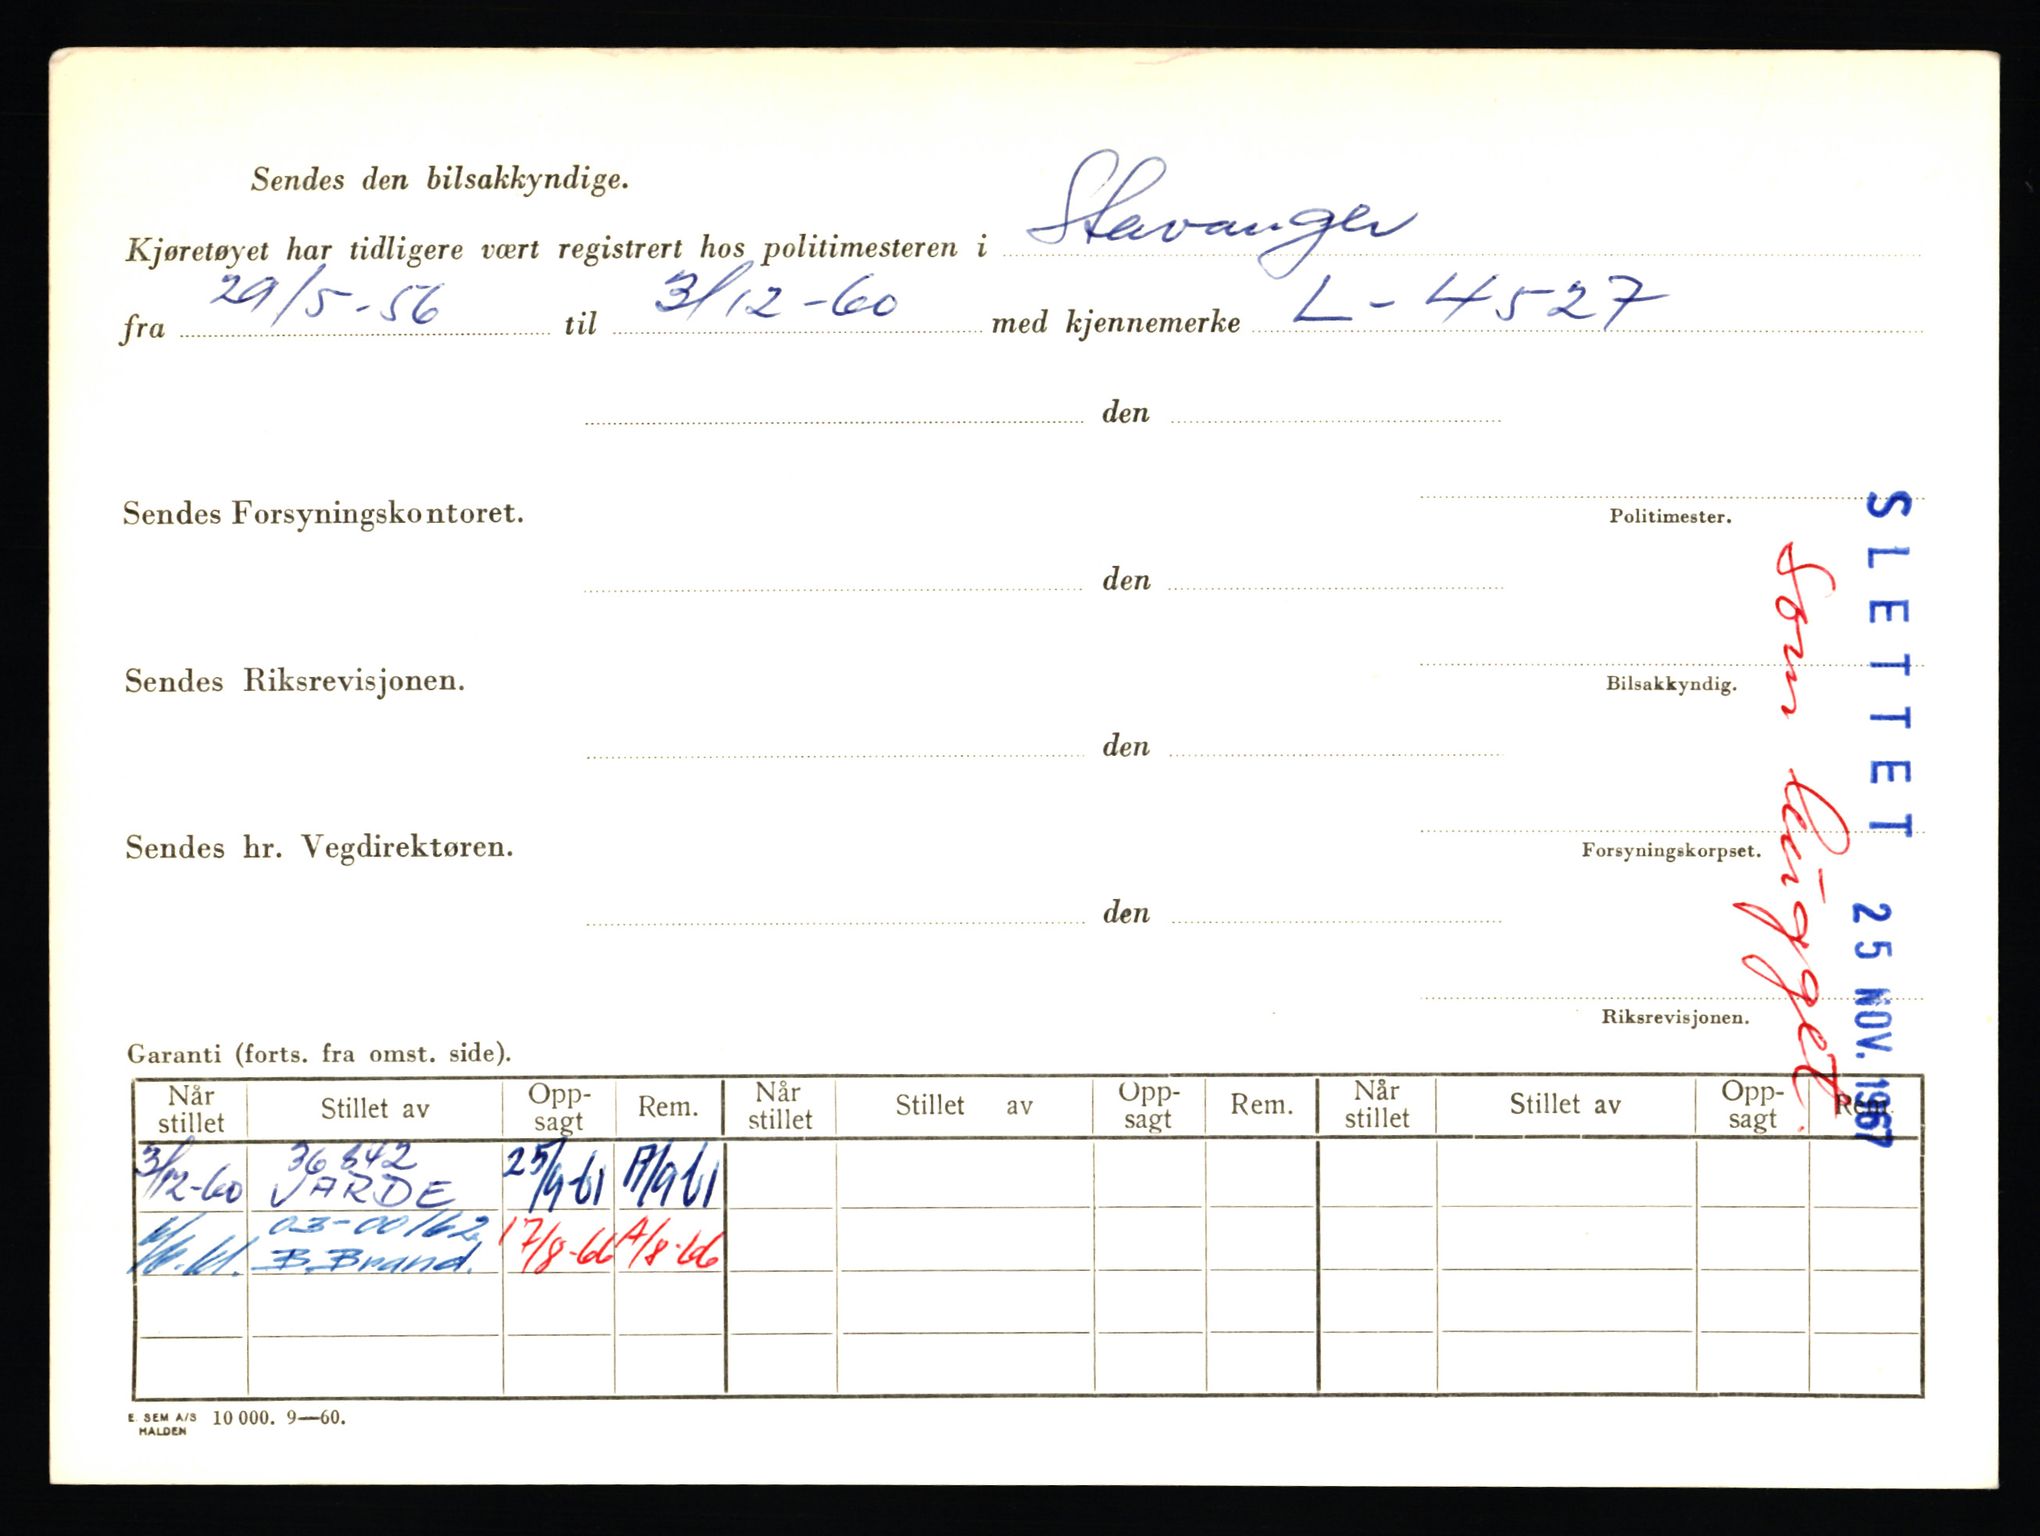 Sendes den bilsakkyndige.
Kjøretøyet har tidligere vært registrert hos politimesteren i Stavanger
fra 29/5-56 til 3/12-60 med kjennemerke L-4527
den
Sendes Forsyningskontoret.
Politimester.
den
Sendes Riksrevisjonen.
Bilsakkyndig.
den
Sendes hr. Vegdirektøren.
Forsyningskorpset.
den
Riksrevisjonen.
SLETTET 25 NOV. 1967
Som hugget
Garanti (forts. fra omst. side).
Når stillet Stillet av Opp-sagt Rem. Når stillet Stillet av Opp-sagt Rem. Når stillet Stillet av Opp-sagt Rem.
3/12-60 36842 VARDE 25/9-61 A/9 61
03-00162 B. Brand. 17/8-66 A/8-66
E. SEM A/S 10 000. 9—60.
HALDEN